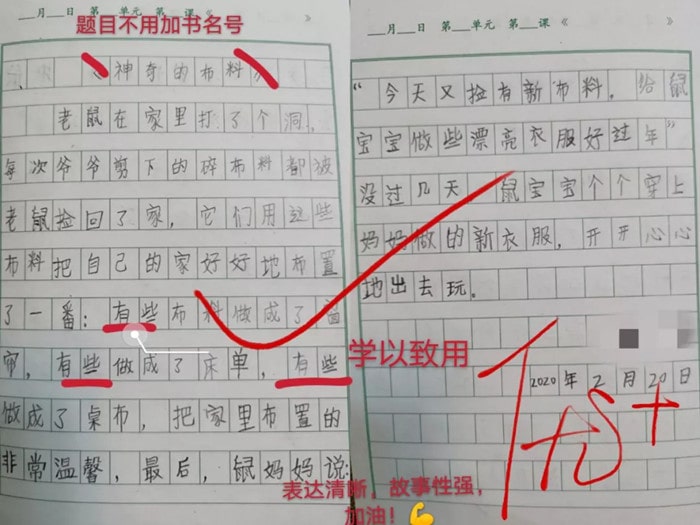 月 日 第 单元 第 课《
题目不用加书名号
《神奇的布料》
老鼠在家里打了个洞，
每次爷爷剪下的碎布料都被
老鼠捡回了家，它们用这些
布料把自己的家好好地布置
了一番：有些布料做成了窗
帘，有些做成了床单，有些
做成了桌布，把家里布置的
非常温馨，最后，鼠妈妈说：
月 日 第 单元 第 课《
“今天又捡有新布料，给鼠
宝宝做些漂亮衣服好过年”
没过几天，鼠宝宝个个穿上
妈妈做的新衣服，开开心心
地出去玩。
学以致用
2020年2月20日
表达清晰，故事性强，
加油！💪